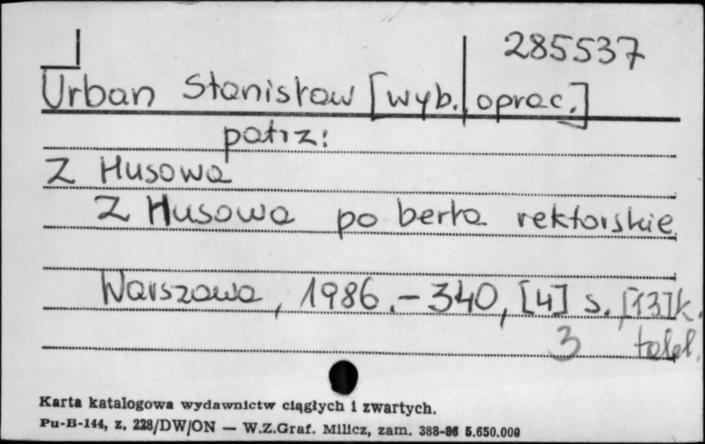 285537
Urban Stanisław [wyb. oprac.]
patrz:
Z Husowa
Z Husowa po berła rektorskie
Warszawa, 1986. – 340, [4] s. [13] k.
3 tabl.
Karta katalogowa wydawnictw ciągłych i zwartych.
Pu-B-144, z. 228/DW/ON — W.Z.Graf. Milicz, zam. 388-86 5.650.000